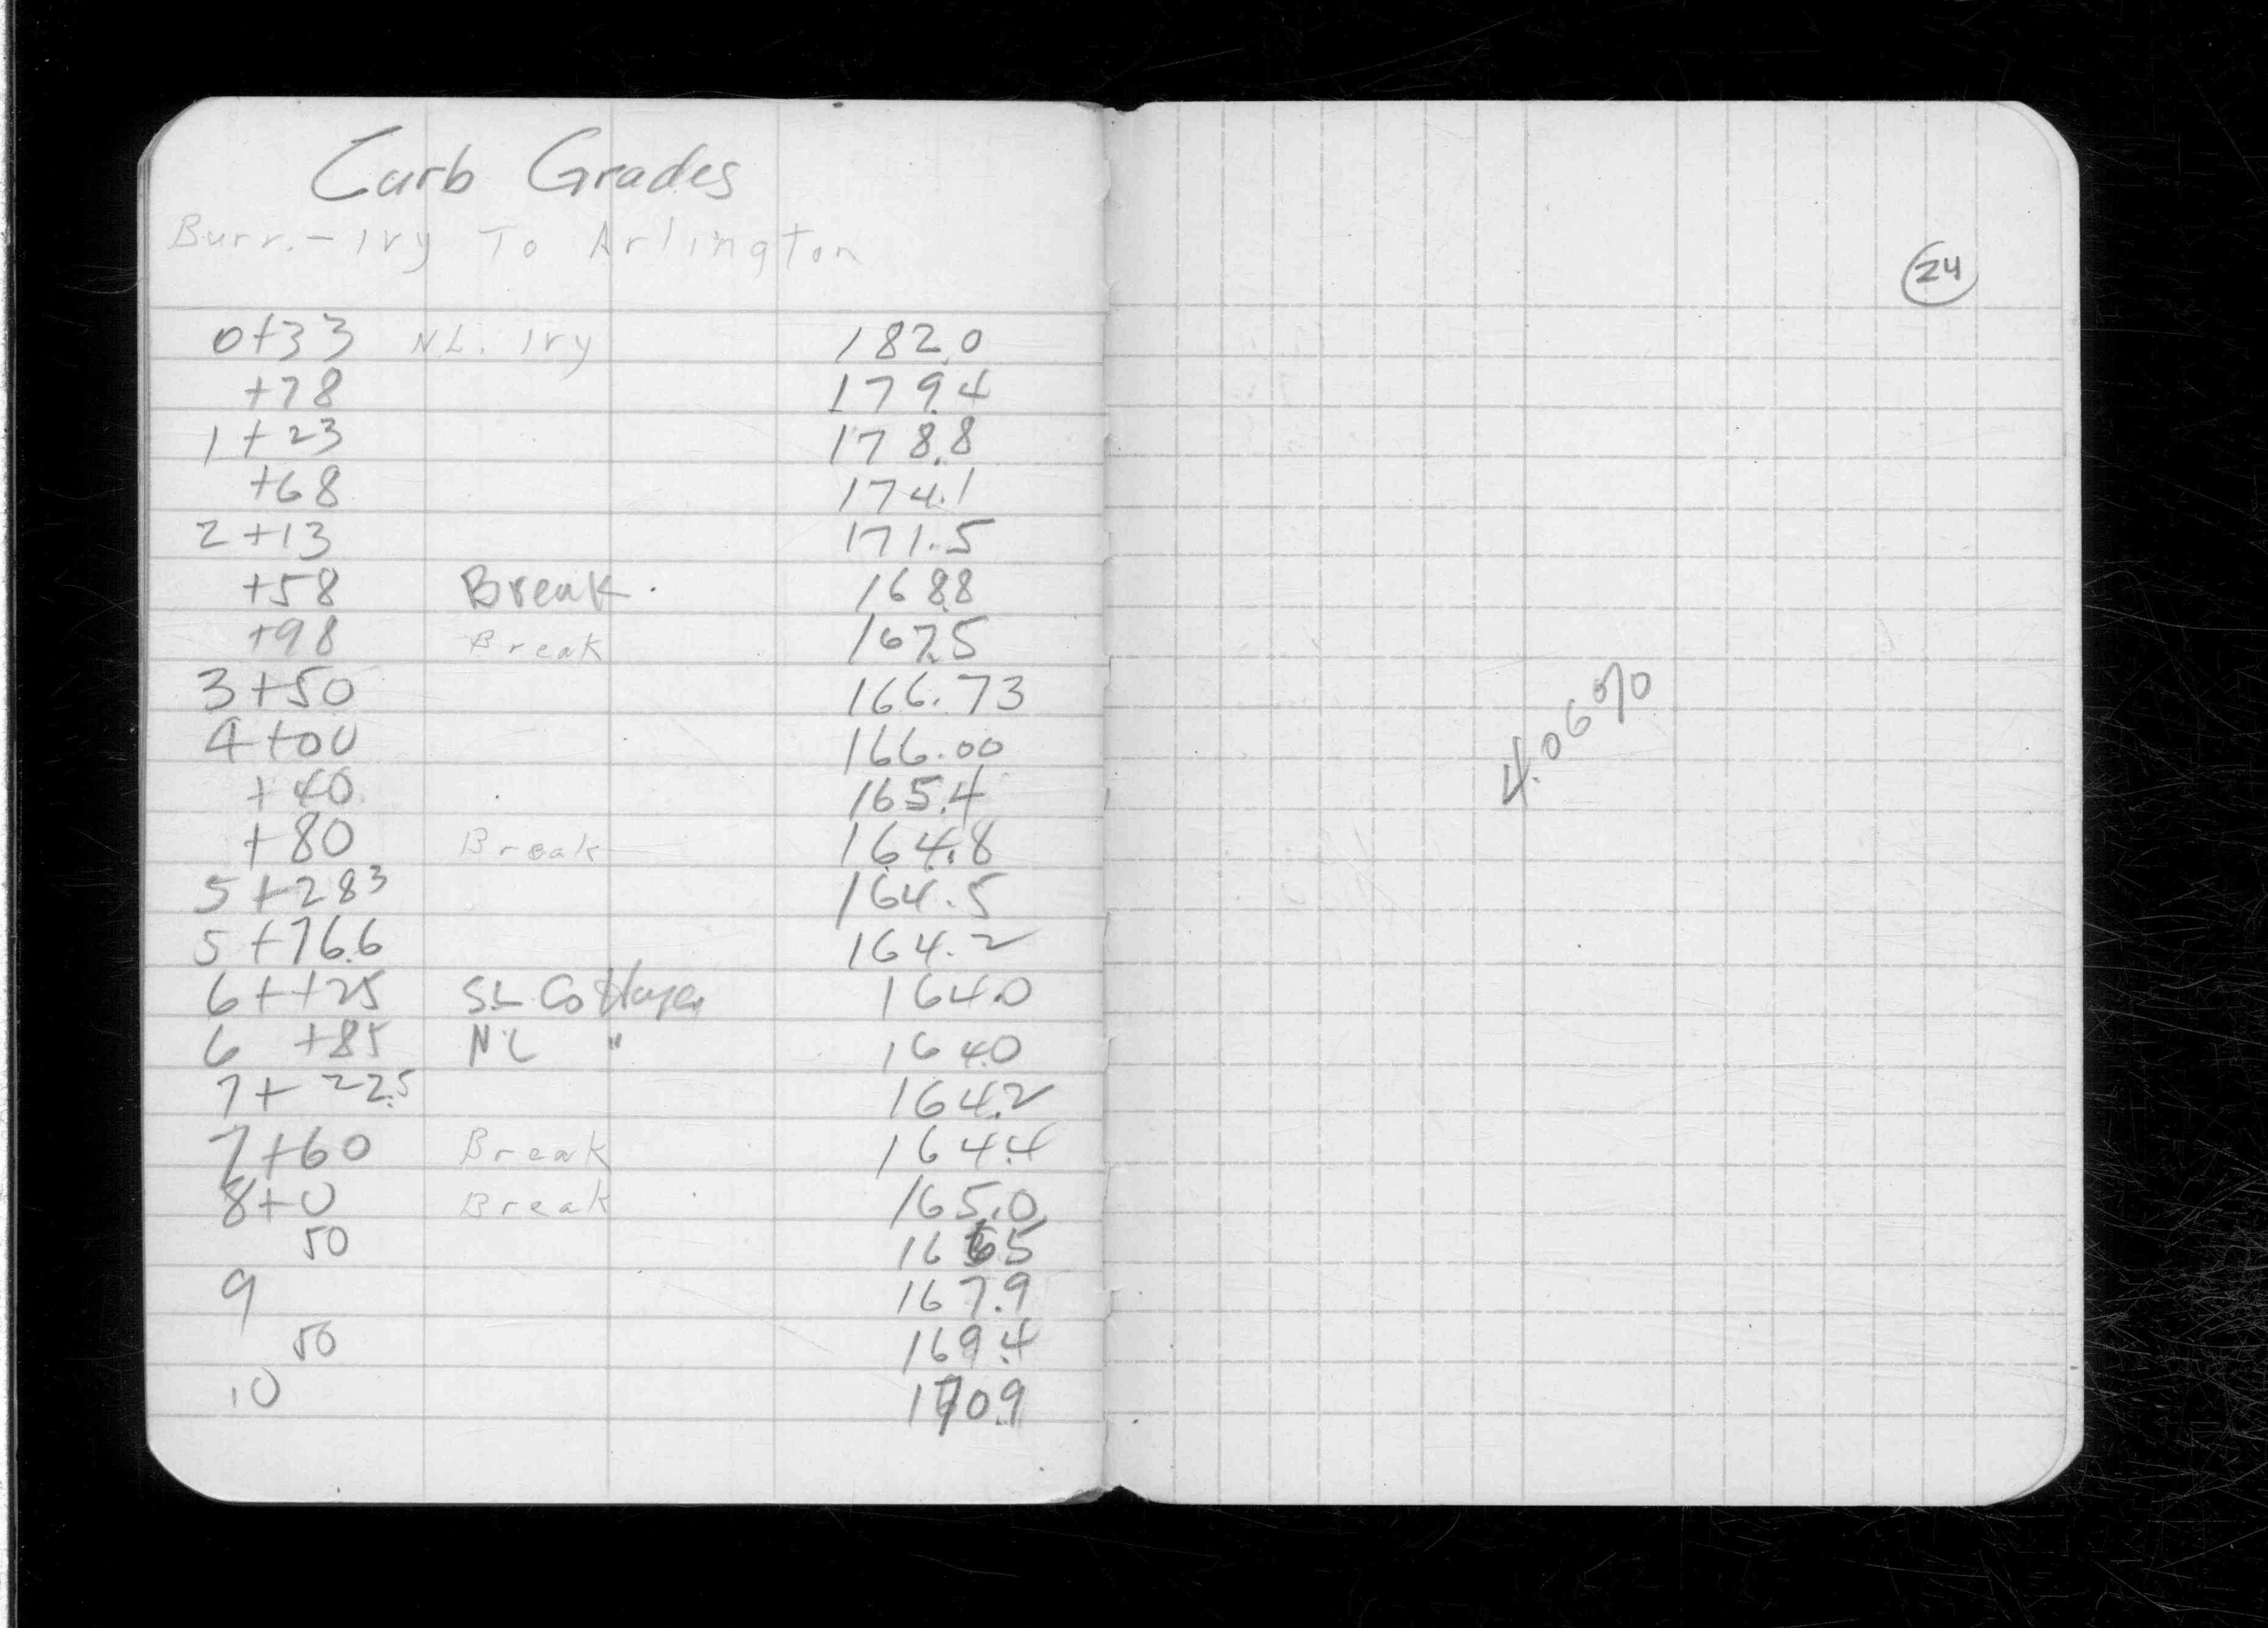 Curb Grades
Burr. - Ivy To Arlington
0+33 N.L. Ivy 182.0
+78 179.4
1+23 178.8
+68 174.1
2+13 171.5
+58 Break. 168.8
+98 Break 167.5
3+50 166.73
4+00 166.00
+40 165.4
+80 Break 164.8
5+283 164.5
5+76.6 164.2
6++25 SL Cottage 164.0
6 +85 NL " 164.0
7+22.5 164.2
7+60 Break 164.4
8+0 Break 165.0
50 166.5
9 167.9
50 169.4
10 170.9
24
4.06%